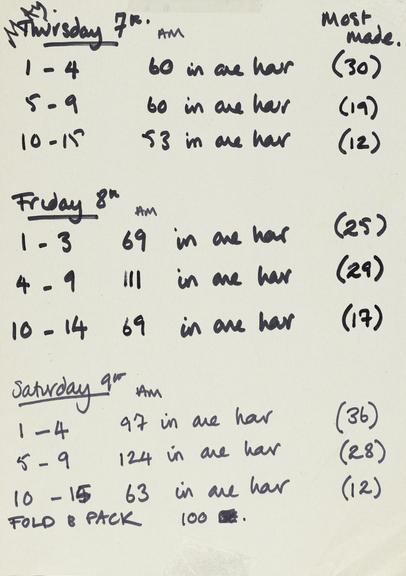 MAY.
Thursday 7th. AM Most made.
1 - 4 60 in one hour (30)
5 - 9 60 in one hour (19)
10 - 15 53 in one hour (12)
Friday 8th AM
1 - 3 69 in one hour (25)
4 - 9 111 in one hour (29)
10 - 14 69 in one hour (17)
Saturday 9th AM
1 - 4 97 in one hour (36)
5 - 9 124 in one hour (28)
10 - 15 63 in one hour (12)
FOLD & PACK 100 .